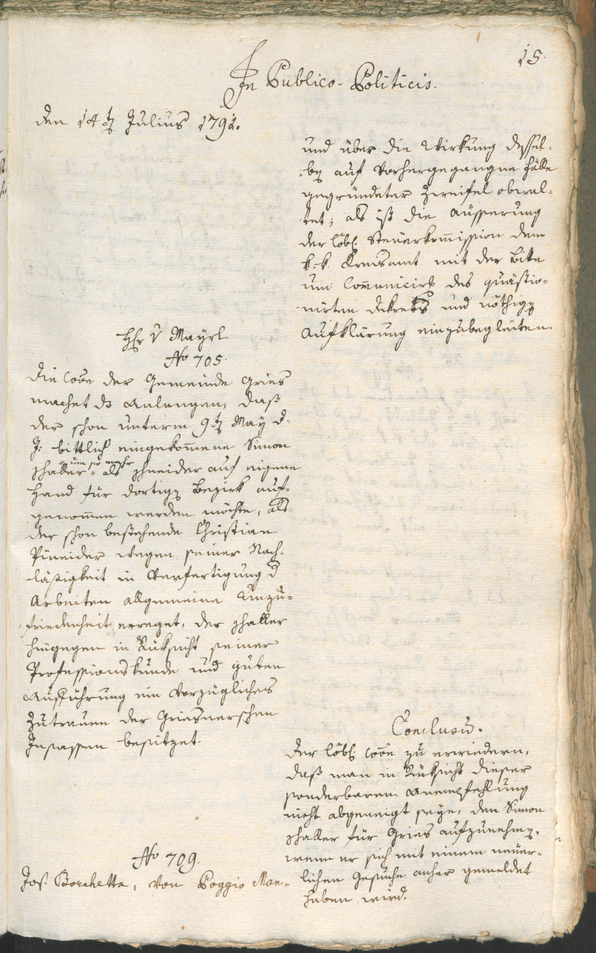 15.
In Publico-Politicis.
Den 14t Julius 1791.
und über die Wirkung dessel-
ben auf vorhergegangne Fälle
gegründeter Zweifel obwal-
tet; als ist die Äusserung
der löbl. Steuerkom̄ission dem
k:k. Kreisamt mit der Bitte
um Com̄unicirg des quästio-
nirten Dekrets und nöthige
Aufklärung einzubegleiten.
Hr v Mayrl
No 705.
Die löbe der Gemeinde Gries
machet ds Anlangen, daß
der schon unterm 9t May d.
J. bittlich eingekom̄ene Simon
um so mehr
Schaller als Schneider auf eigene
Hand für dortigen Bezirk auf-
genommen werden möchte, als
der schon bestehende Christian
Pineider wegen seiner Nach-
läßigkeit in Verfertigung d
Arbeiten allgemeine Unzu-
friedenheit erreget, der Schaller
hingegen in Rüksicht seiner
Professionskunde und guten
Aufführung ein vorzügliches
Zutrauen der Griesnerschen
Insassen besitzet.
Conclusum.
Der löbl. Com̄e zu erwiedern,
daß man in Rüksicht dieser
sonderbaren Anempfehlung
nicht abgeneigt seye, den Simon
Schaller für Gries aufzunehmen,
wenn er sich mit einem neuer-
lichen Gesuche anher gemeldet
haben wird.
No 709.
Jos. Borchetta, von Poggio Man-